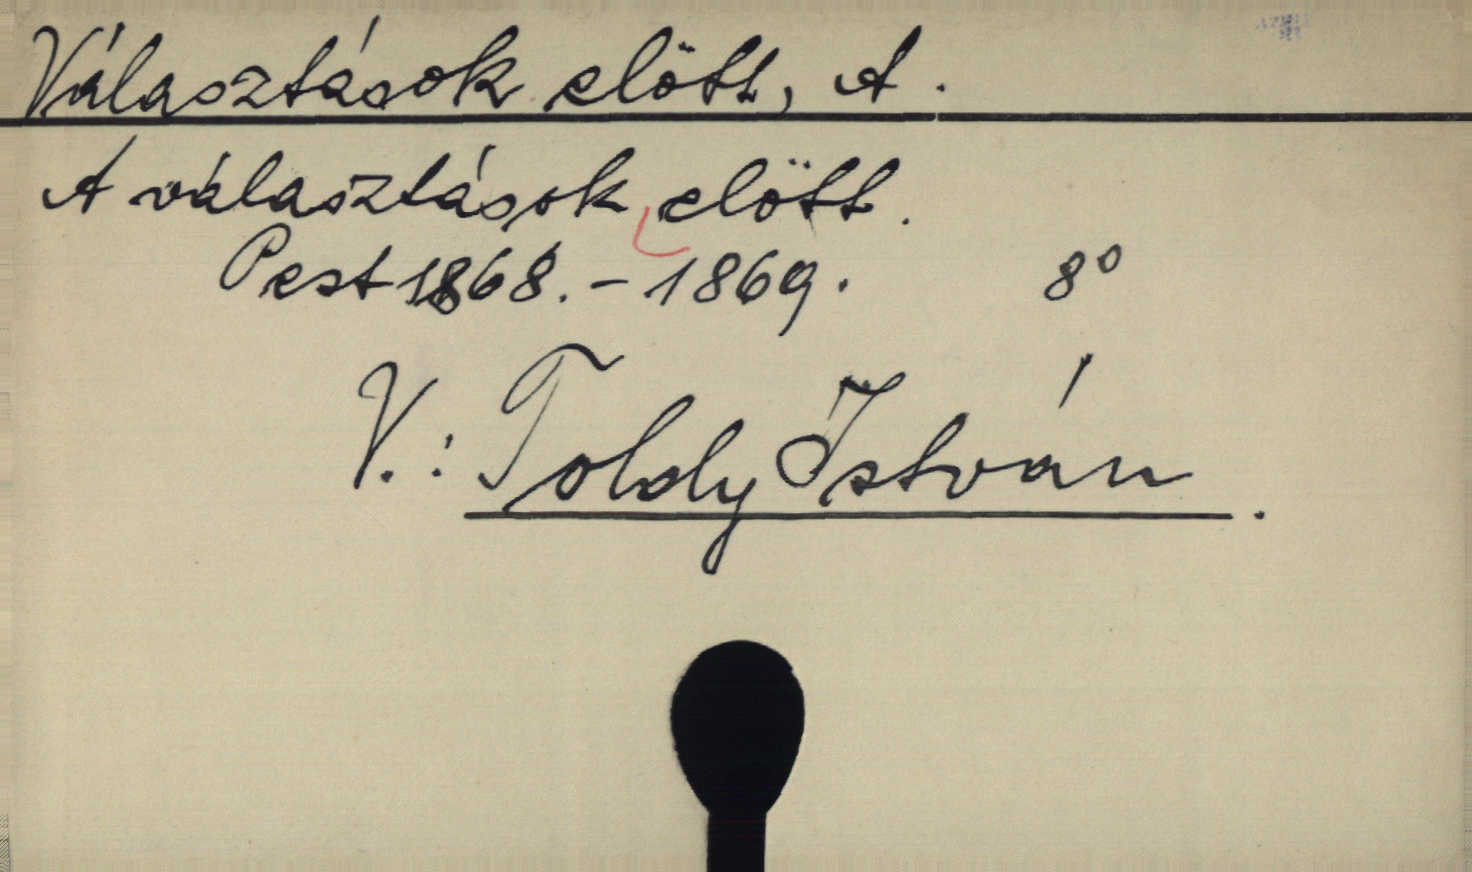 Választások előtt, A.
A választások előtt.
Pest 1868.-1869. 8°
V.: Toldy István.